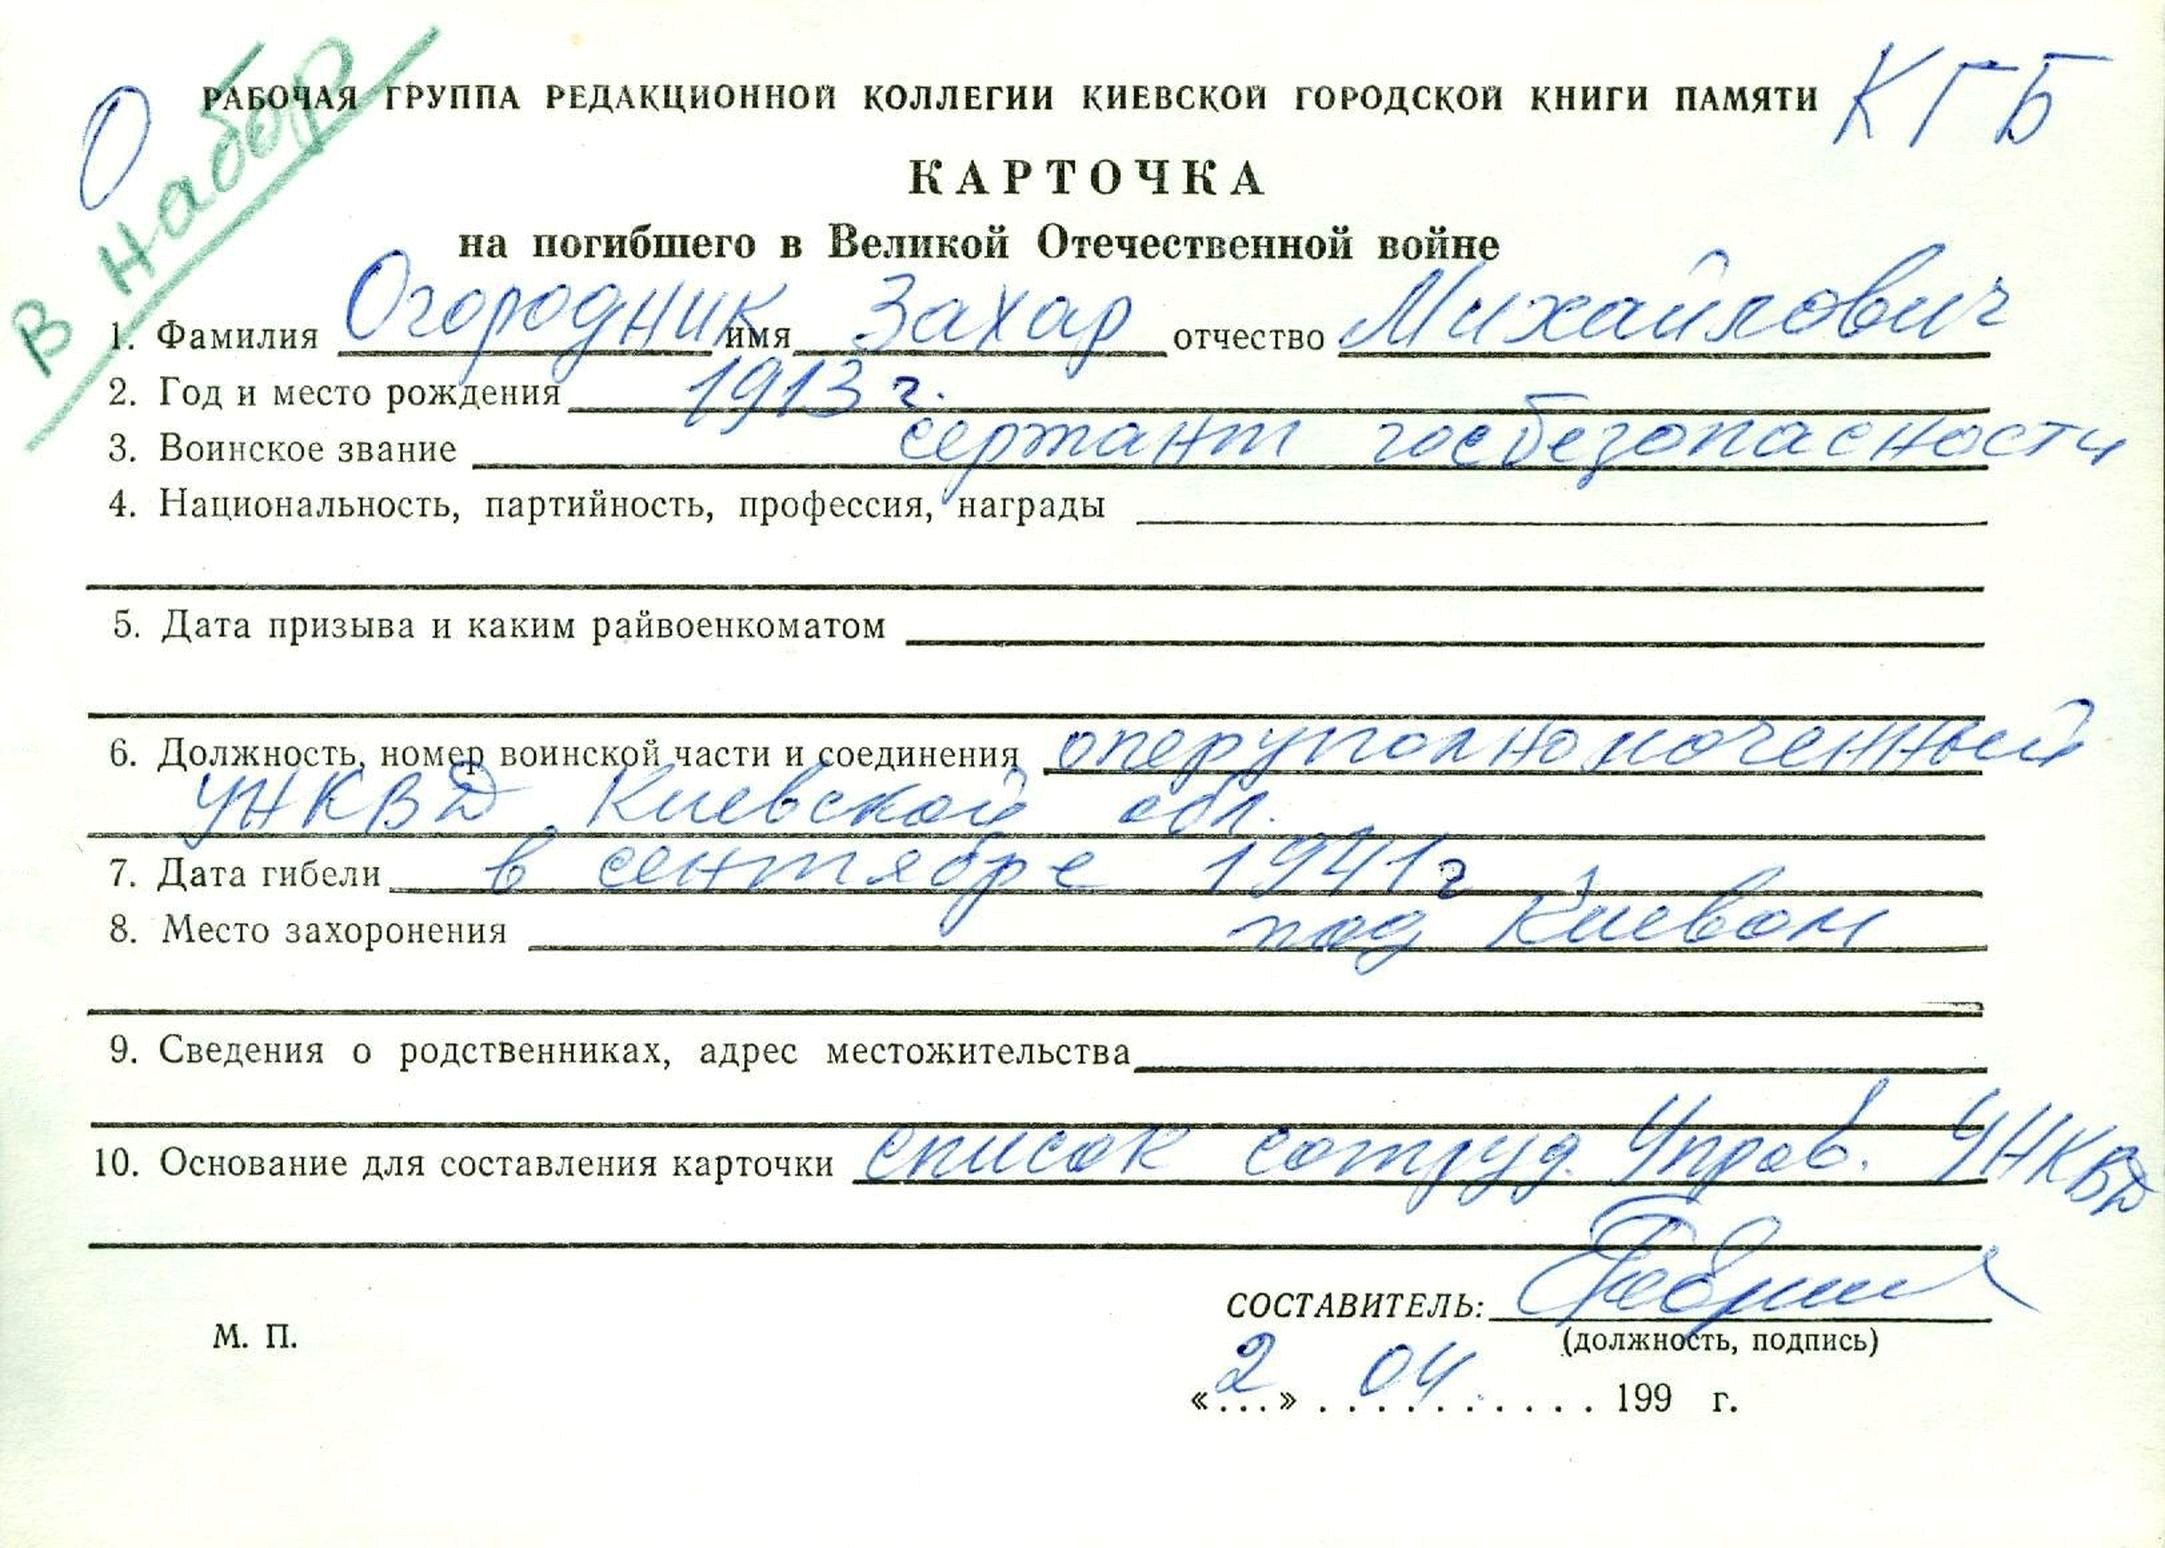 О
В набор
КГБ
РАБОЧАЯ ГРУППА РЕДАКЦИОННОЙ КОЛЛЕГИИ КИЕВСКОЙ ГОРОДСКОЙ КНИГИ ПАМЯТИ
КАРТОЧКА
на погибшего в Великой Отечественной войне
1. Фамилия Огородник имя Захар отчество Михайлович
2. Год и место рождения 1913 г.
3. Воинское звание сержант госбезопасности
4. Национальность, партийность, профессия, награды
5. Дата призыва и каким райвоенкоматом
6. Должность, номер воинской части и соединения оперуполномоченный
УНКВД Киевской обл.
7. Дата гибели в сентябре 1941г
8. Место захоронения под Киевом
9. Сведения о родственниках, адрес местожительства
10. Основание для составления карточки список сотруд. Управ. УНКВД
СОСТАВИТЕЛЬ:
М. П.
(должность, подпись)
«2» 04. 199 г.